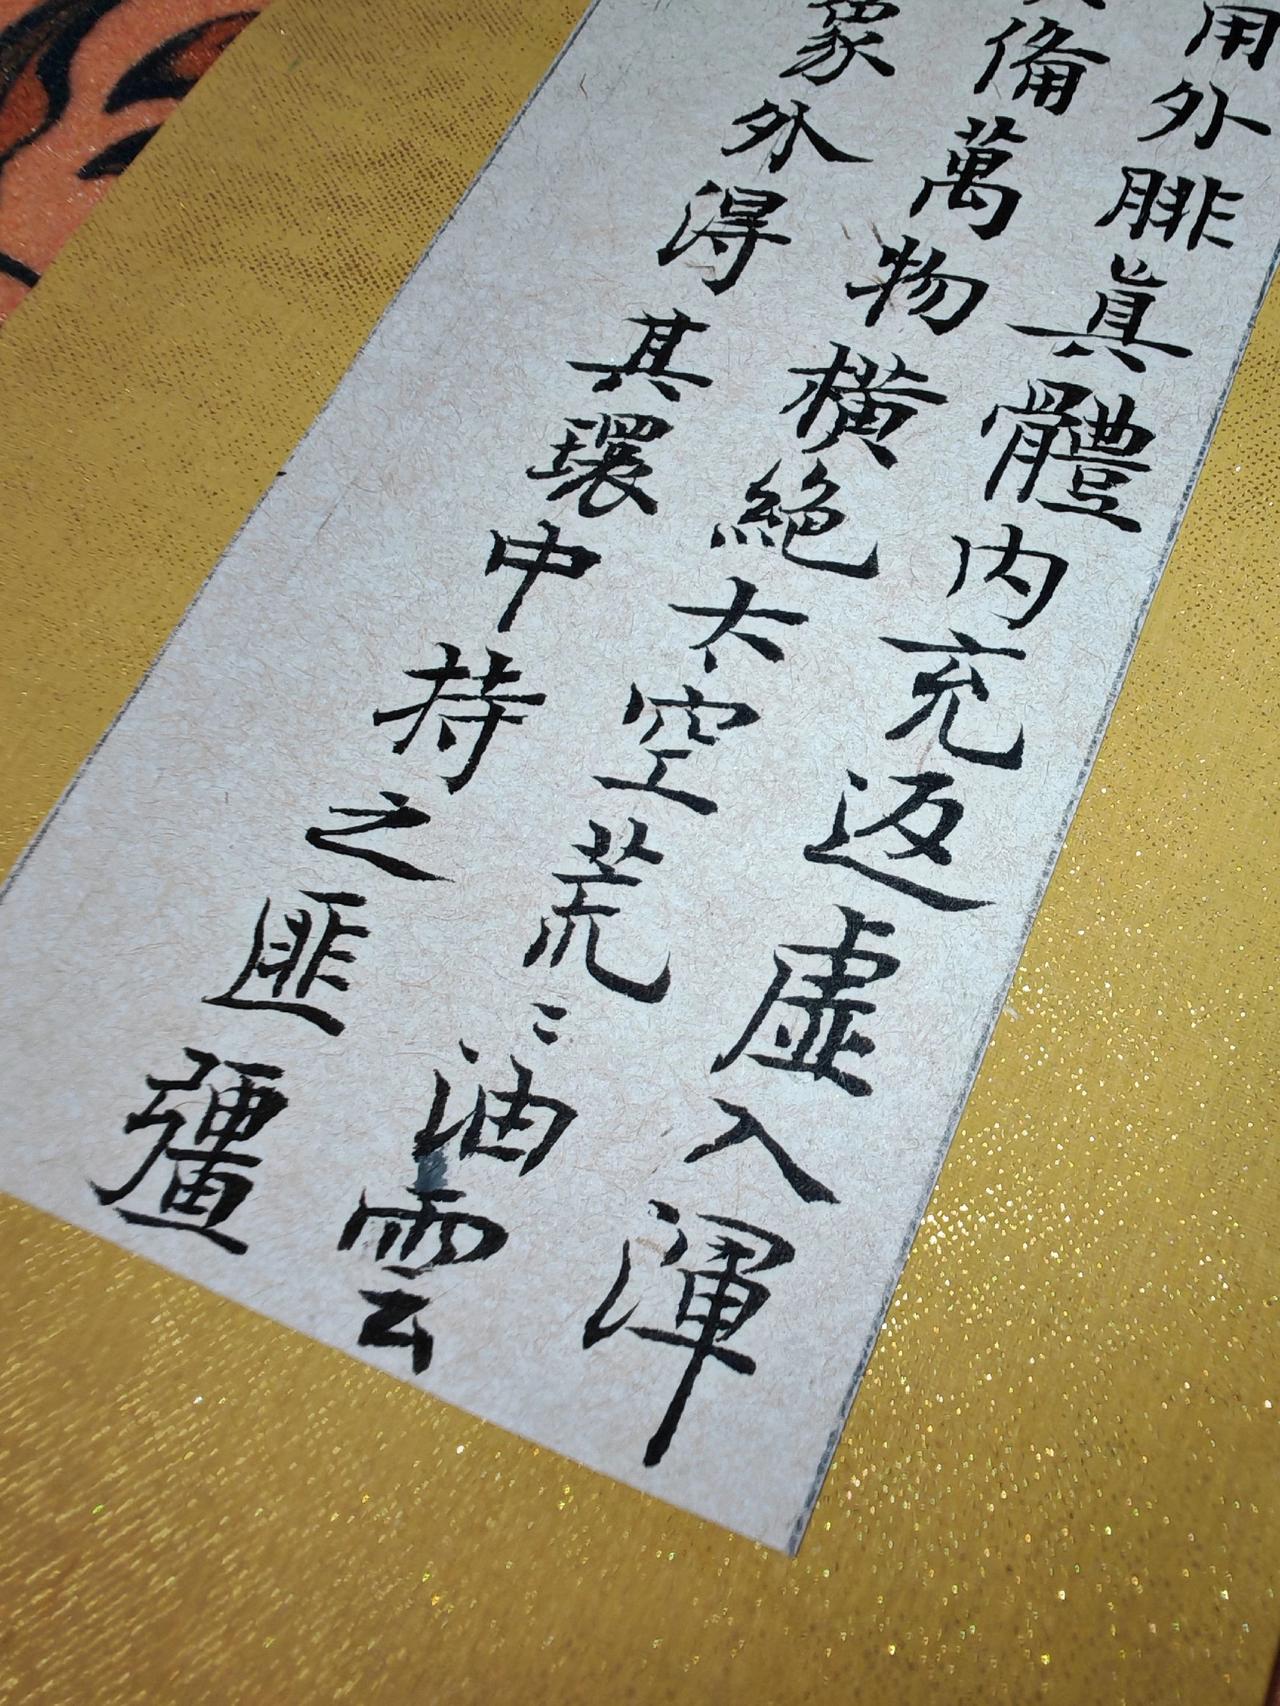 用外腓真體內充返虛入渾
備萬物橫絕太空荒〻油雲
象外得其環中持之匪彊